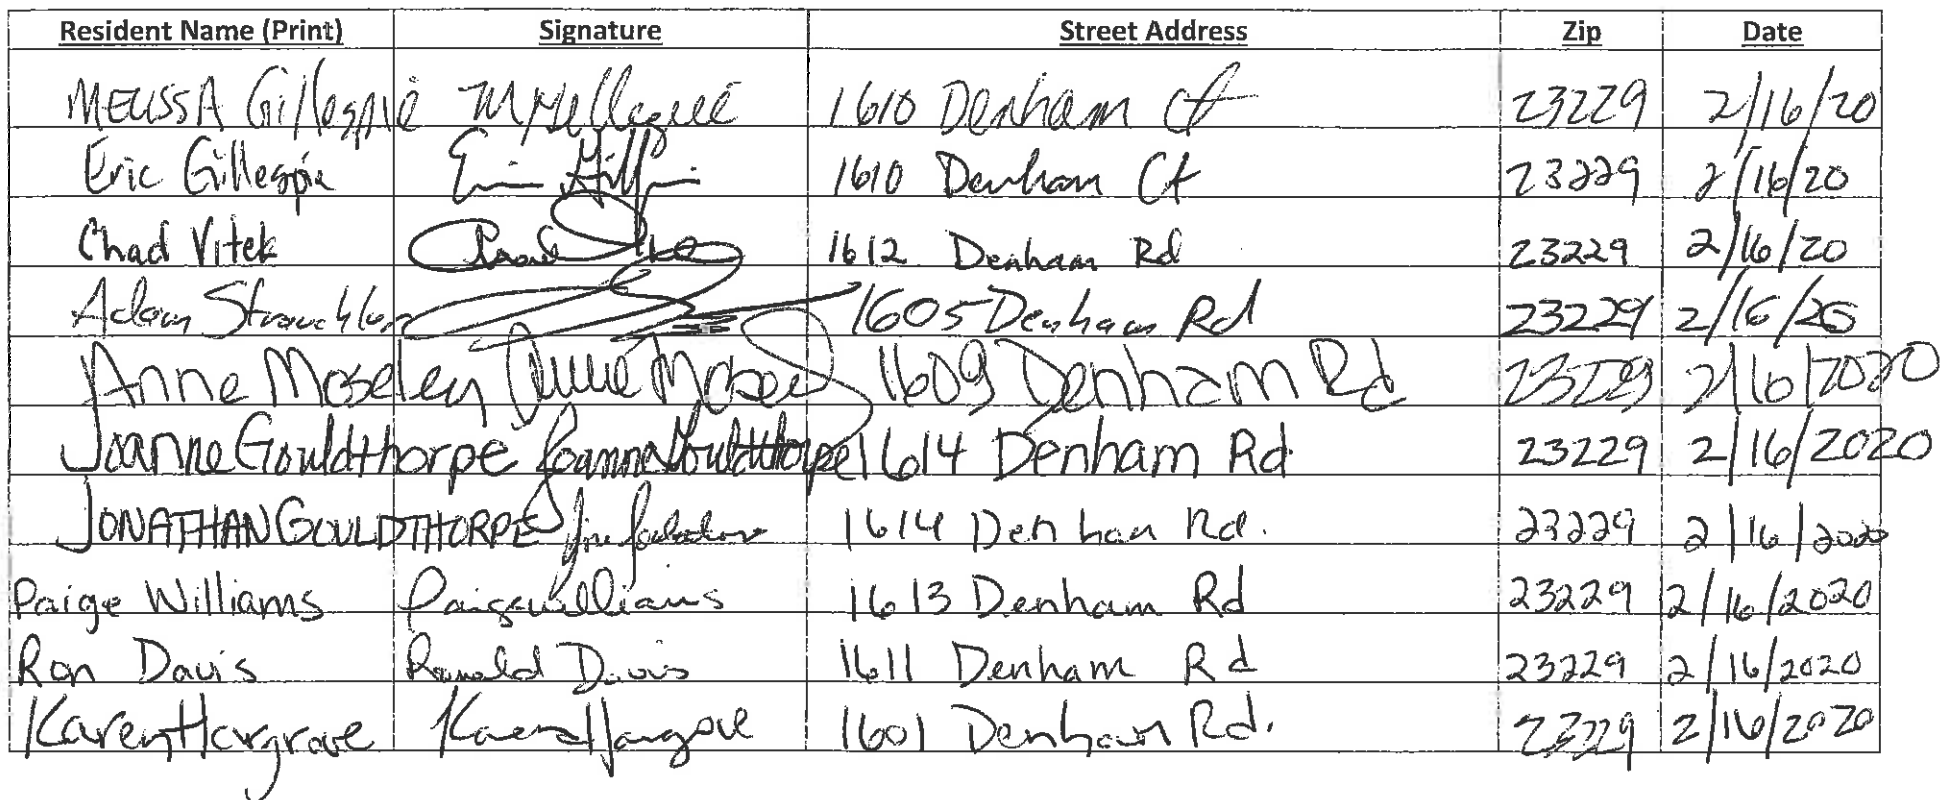 Resident Name (Print) Signature Street Address Zip Date
MELISSA Gillespie 1610 Denham Ct 23229 2/16/20
Eric Gillespie 1610 Denham Ct 23229 2/16/20
Chad Vitek 1612 Denham Rd 23229 2/16/20
Adam 1605 Denham Rd 23229 2/16/20
Anne Moseley Anne Moseley 1609 Denham Rd 23229 2/16/2020
Joanne Gouldthorpe Joanne Gouldthorpe 1614 Denham Rd. 23229 2/16/2020
JONATHAN GOULDTHORPE 1614 Denham Rd. 23229 2/16/2020
Paige Williams Paige Williams 1613 Denham Rd 23229 2/16/2020
Ron Davis Ronald Davis 1611 Denham Rd 23229 2/16/2020
Karen Hargrove Karen Hargrove 1601 Denham Rd. 23229 2/16/2020